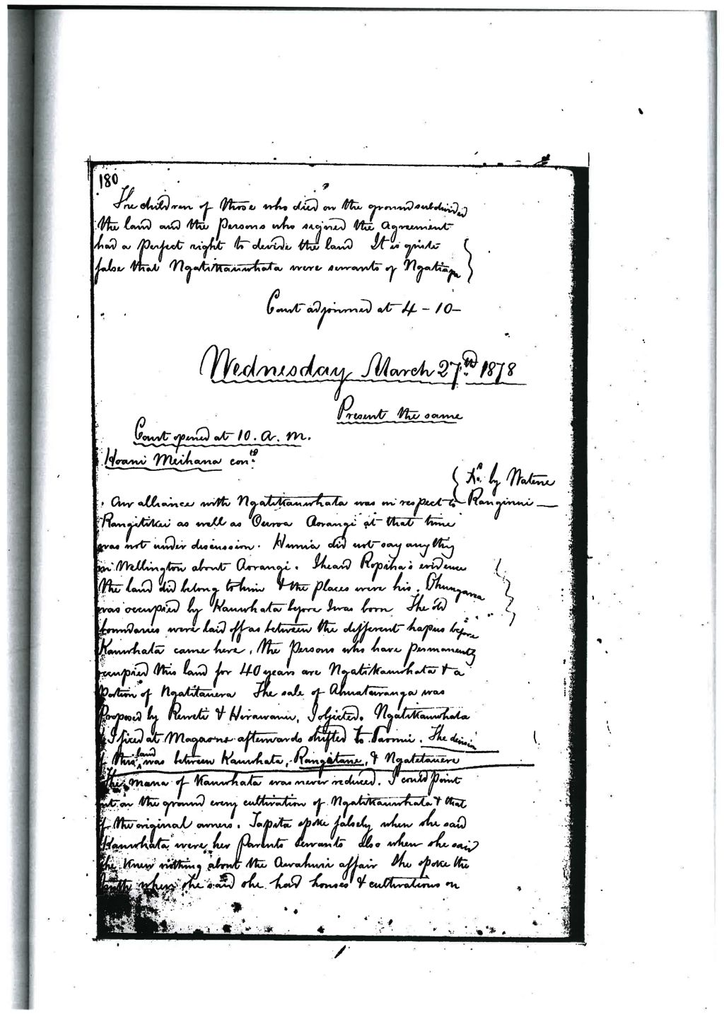 180
The children of those who died on the ground subdivided
the land and the Persons who signed the Agreement
had a perfect right to devide the land It is quite
false that Ngatikauwhata were servants of
Court adjourned at 4-10-
Wednesday March 27th 1878
Present the same
Court opened at 10. A. M.
Hoani Meihana cond
Xd by Watene
Ranginui —
. Our alliance with Ngatikauwhata was in respect to
Rangitikei as well as Oeroa Aorangi at that time
was not under discussion. did not say any thing
in Wellington about Aorangi. I heard Ropiha's evidence
the land did belong to him & the places were his.
was occupied by Kauwhata before I was born The old
boundaries were laid off as between the different hapus before
Kauwhata came here, the persons who have permanently
occupied this land for 40 years are Ngatikauwhata & a
Portion of Ngatitauera The sale of Ahuaturanga was
Proposed by & Hirawanu, I objected. Ngatikauwhata
fired at afterwards shifted to The
this land was between Kauwhata, Rangitane, & Ngatitauera
The mana of Kauwhata was never reduced. I could point
out on the ground every cultivation of Ngatikauwhata & that
of the original owners. Tapita spoke falsely when she said
Kauwhata were her Parents servants Also when she said
she knew nothing about the Awahuri affair She spoke the
truth when she said she had houses & cultivations on